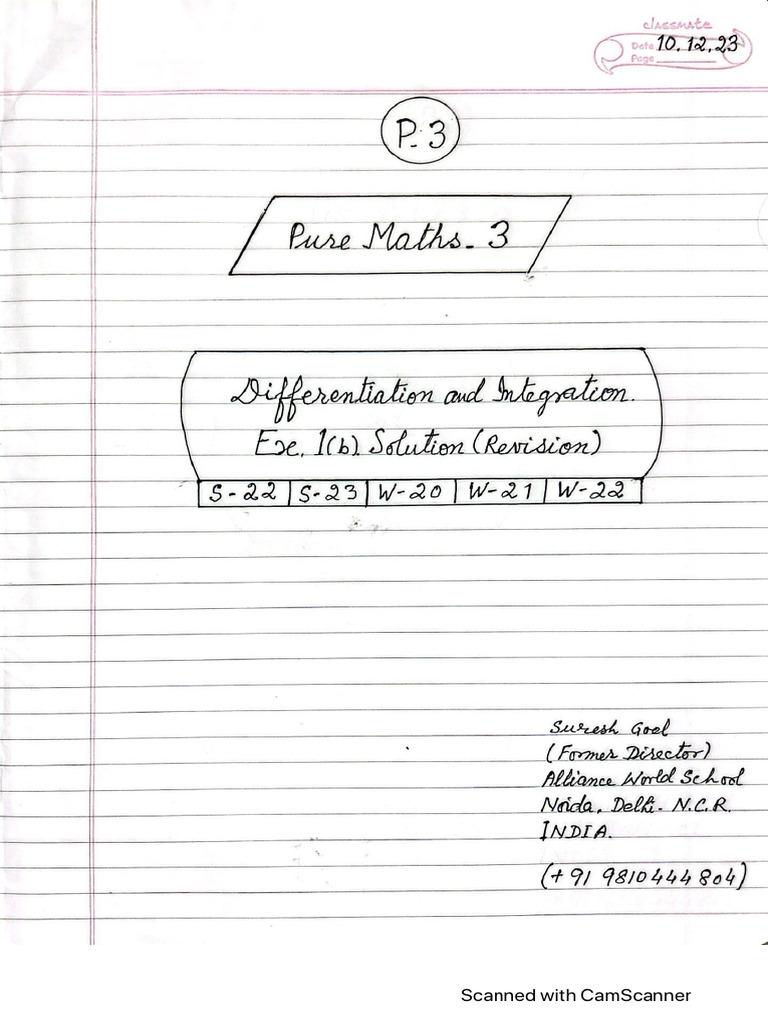 classmate
Date 10.12.23
Page
P.3
Pure Maths-3
Differentiation and Integration.
Exe. 1(b) Solution (Revision)
S-22 S-23 W-20 W-21 W-22
Suresh Goel
(Former Director)
Alliance World School
Noida, Delhi- N.C.R.
INDIA.
(+91 9810444804)
Scanned with CamScanner